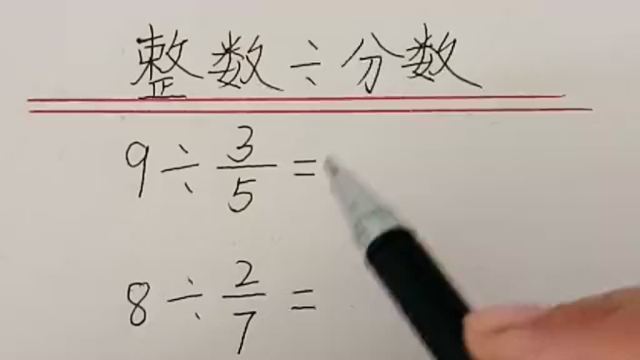 整数÷分数
9÷3/5=
8÷2/7=